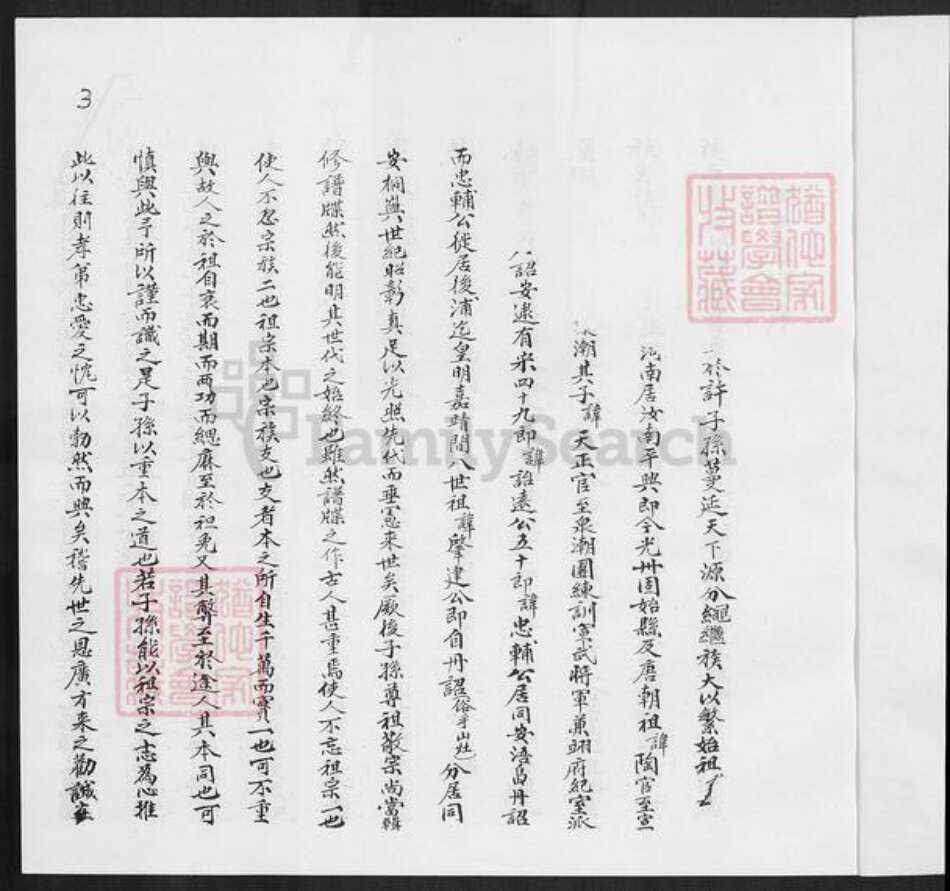 於許子孫蔓延天下源分繩繼族大以繁始祖
河南居汝南平興即今光州固始縣及唐朝祖諱陶官至宣
潮其子諱天正官至泉潮團練訓軍武將軍兼翊府紀室派
詔安遠有宋四十九郎諱誰遠公五十郎諱忠輔公居同安浯島丹詔
而忠輔公徙居後浦迄皇明嘉靖間八世祖諱肇建公即自丹詔俗子山灶分居同
安桐與世紀昭彰真足以光照先代而垂憲來世矣厥後子孫尊祖敬宗尚當輯
修譜牒然後能明其世代之始終也雖然譜牒之作古人甚重焉使人不忘祖宗一也
使人不忽宗族二也祖宗本也宗族支也支者本之所自生千萬而實一也可不重
與故人之於祖自衰而期而兩功而緦麻至於袒免又其弊至於途人其本同也可
慎與此予所以謹而識之是子孫以重本之道也若子孫能以祖宗之志為心推
此以往則孝弟忠愛之忱可以勃然而興矣稽先世之恩廣方來之勸誡在
3
猶他家
譜學會
收藏
猶他家
譜學會
收藏
FamilySearch